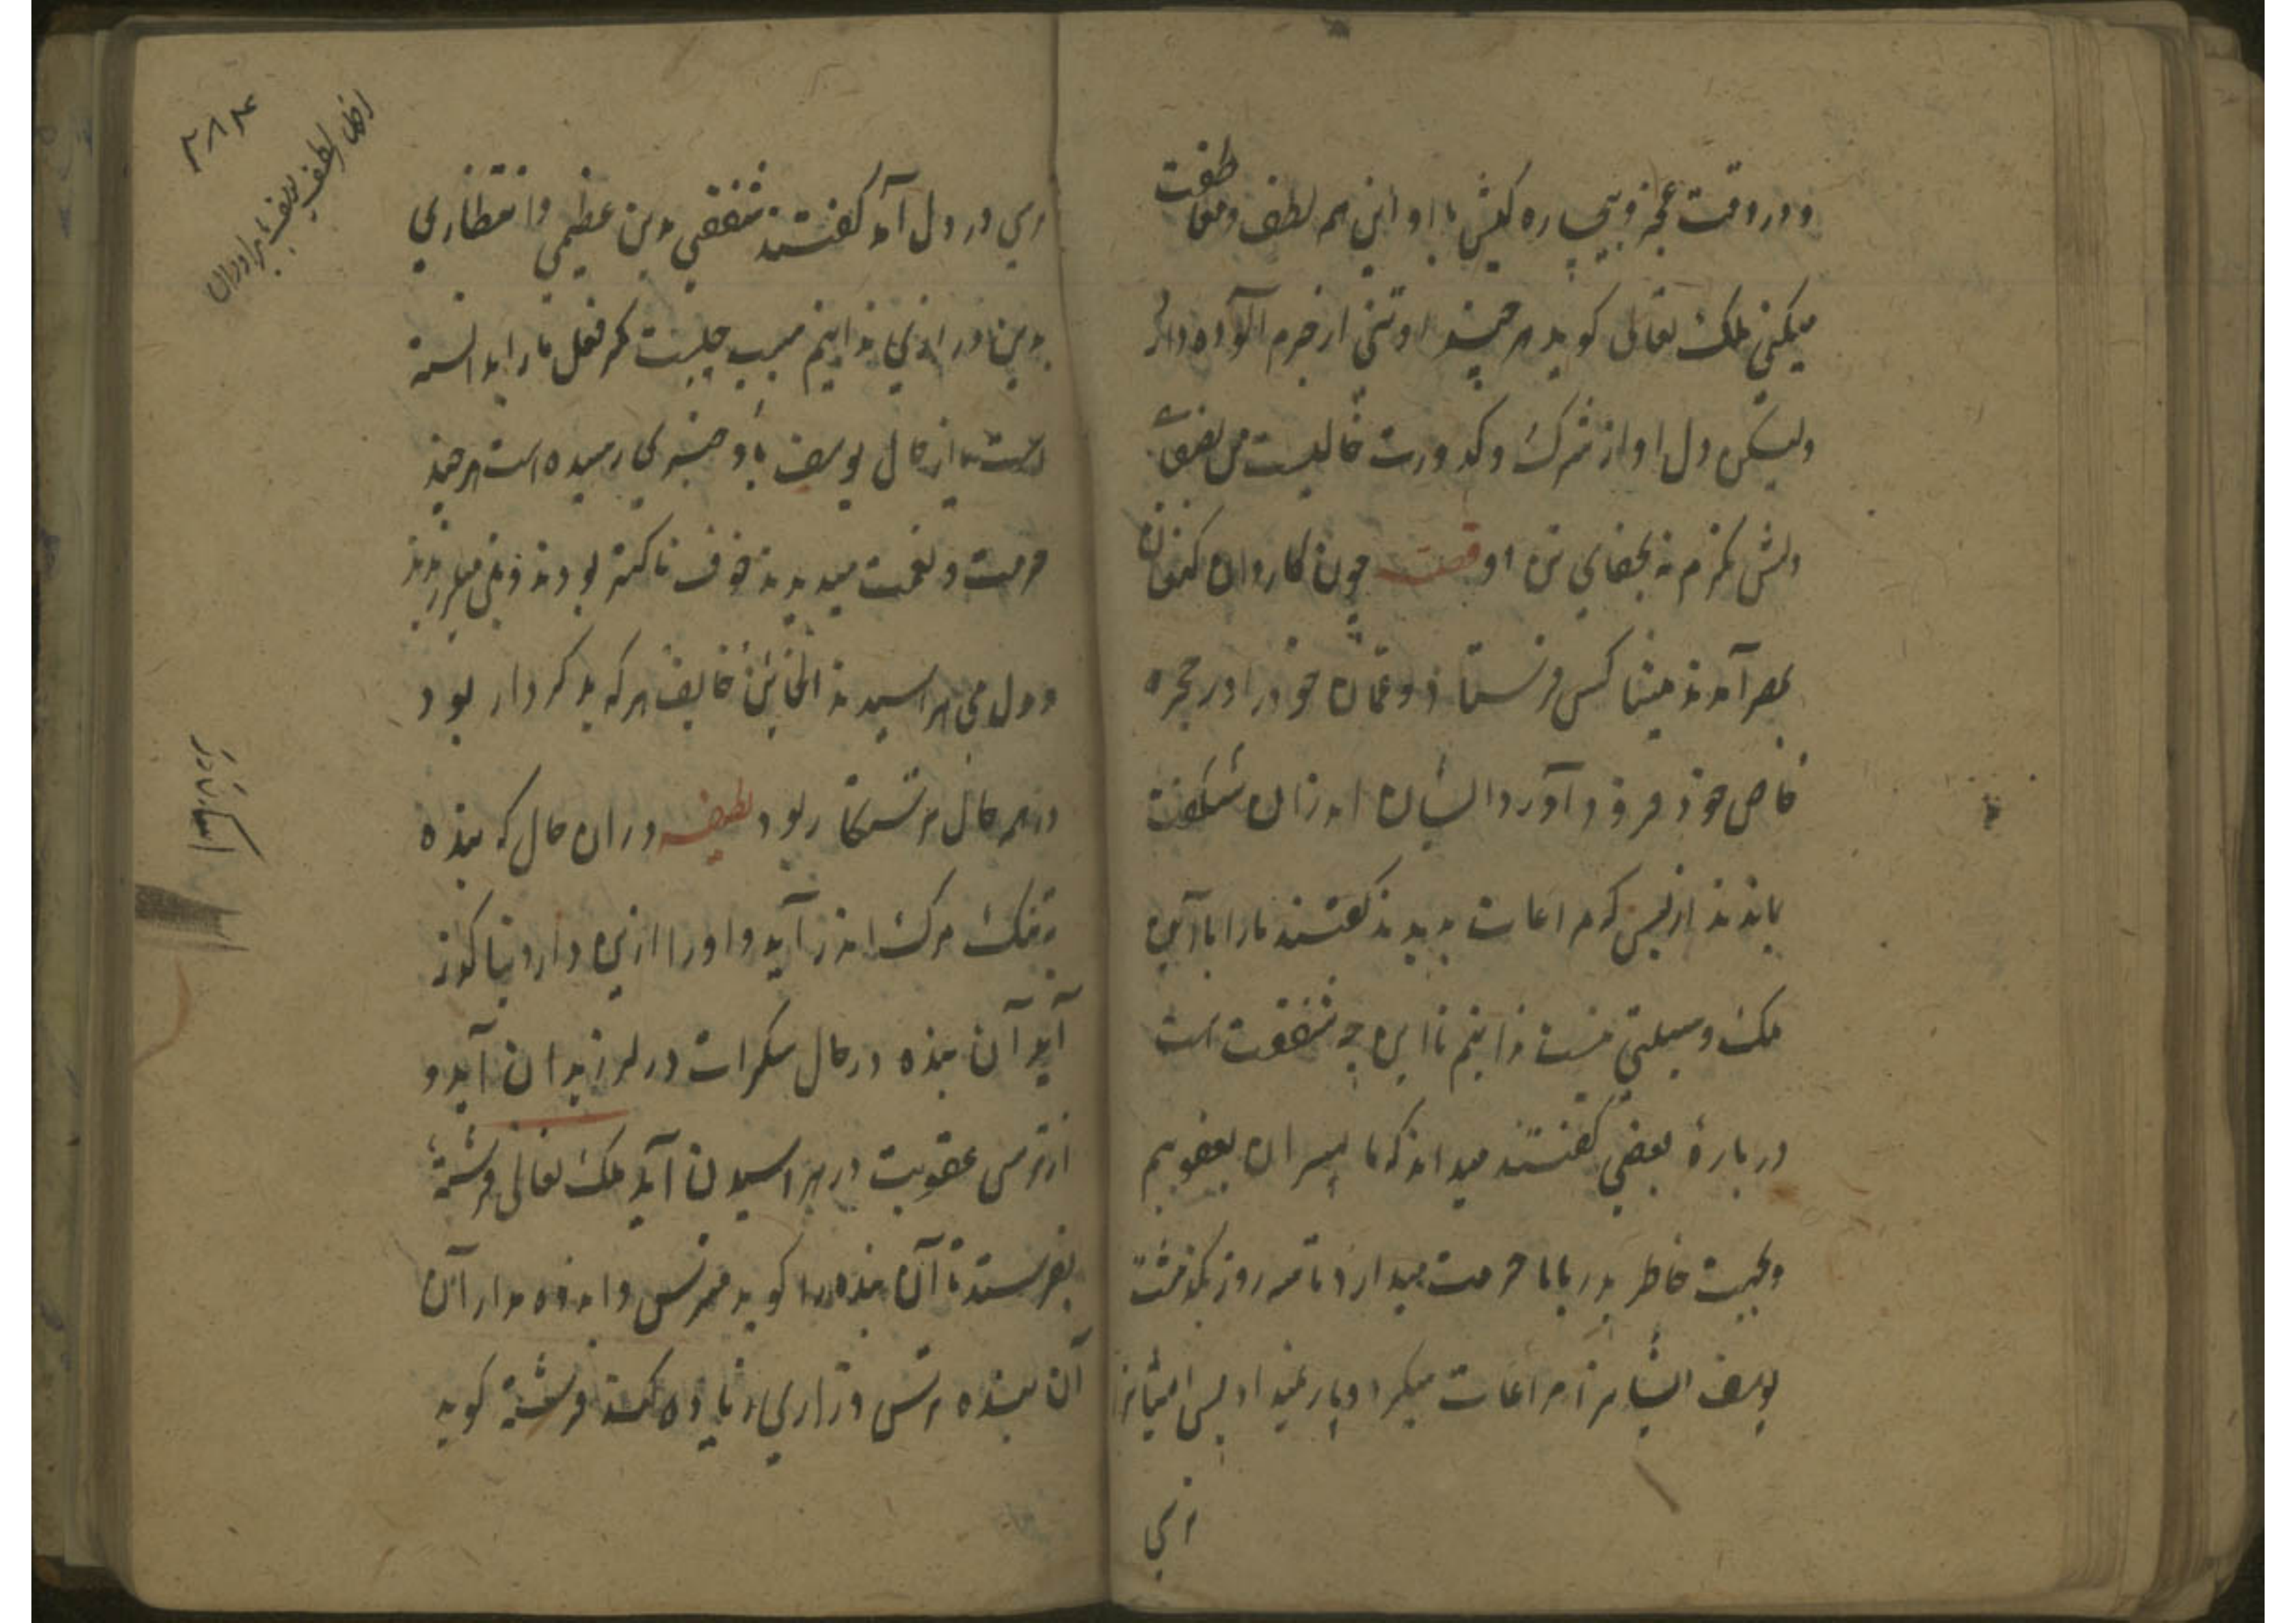 و در وقت عجز و بیچاره کیش با او این همه لطف و معاطفت
میکنی ملک تعالی کوید هر چند او تنی از جرم آلوده دارد
ولیکن دل او از شرک و کدورت خالیست من بصفای
دلش نکرم نه بجفای تن او قصه چون کاروان کنعان
بمصر آمدند کس فرستاد و عمان خود را در حجره
خاص خود فرود آورد ایشان اندران شکفت
بماندند از بس که مراعات بدیدند کفتند ما را با این
ملک وسیلتی نیست ندانیم تا این چه شفقت است
در بارهٔ بعضی کفتند میداند که ما پسران یعقوبیم
و بجهت خاطر پدر با ما حرمت میدارد تا سه روز بکذشت
یوسف ایشانرا مراعات میکرد و بار نمیداد پس ایشانرا
ترسی
ترسی در دل آمد کفتند شفقتی بدین عظیمی و انتظاری
بدین درازی ندانیم سبب چیست مکر فعل ما را بدانسته
است یا از حال یوسف باو خبری رسیده است هر چند
حرمت و نعمت میدیدند خوف ناکتر بودند و تن میلرزیدند
و دل می هراسیدند الخائن خایف هر که بد کردار بود
در همه حال ترسکار بود لطیفه در ان حال که بنده
بتنک مرک اندر آید و او را ازین دار دنیا کوز
آید آن بنده در حال سکرات در لرزیدان آید و
از ترس عقوبت در هراسیدن آید ملک تعالی فرشتهٔ
بفرستد تا آن بنده را کوید مترس و اندوه مدار آن
آن بنده ترس و زاری زیاده کند فرشته کوید
۲۸۴